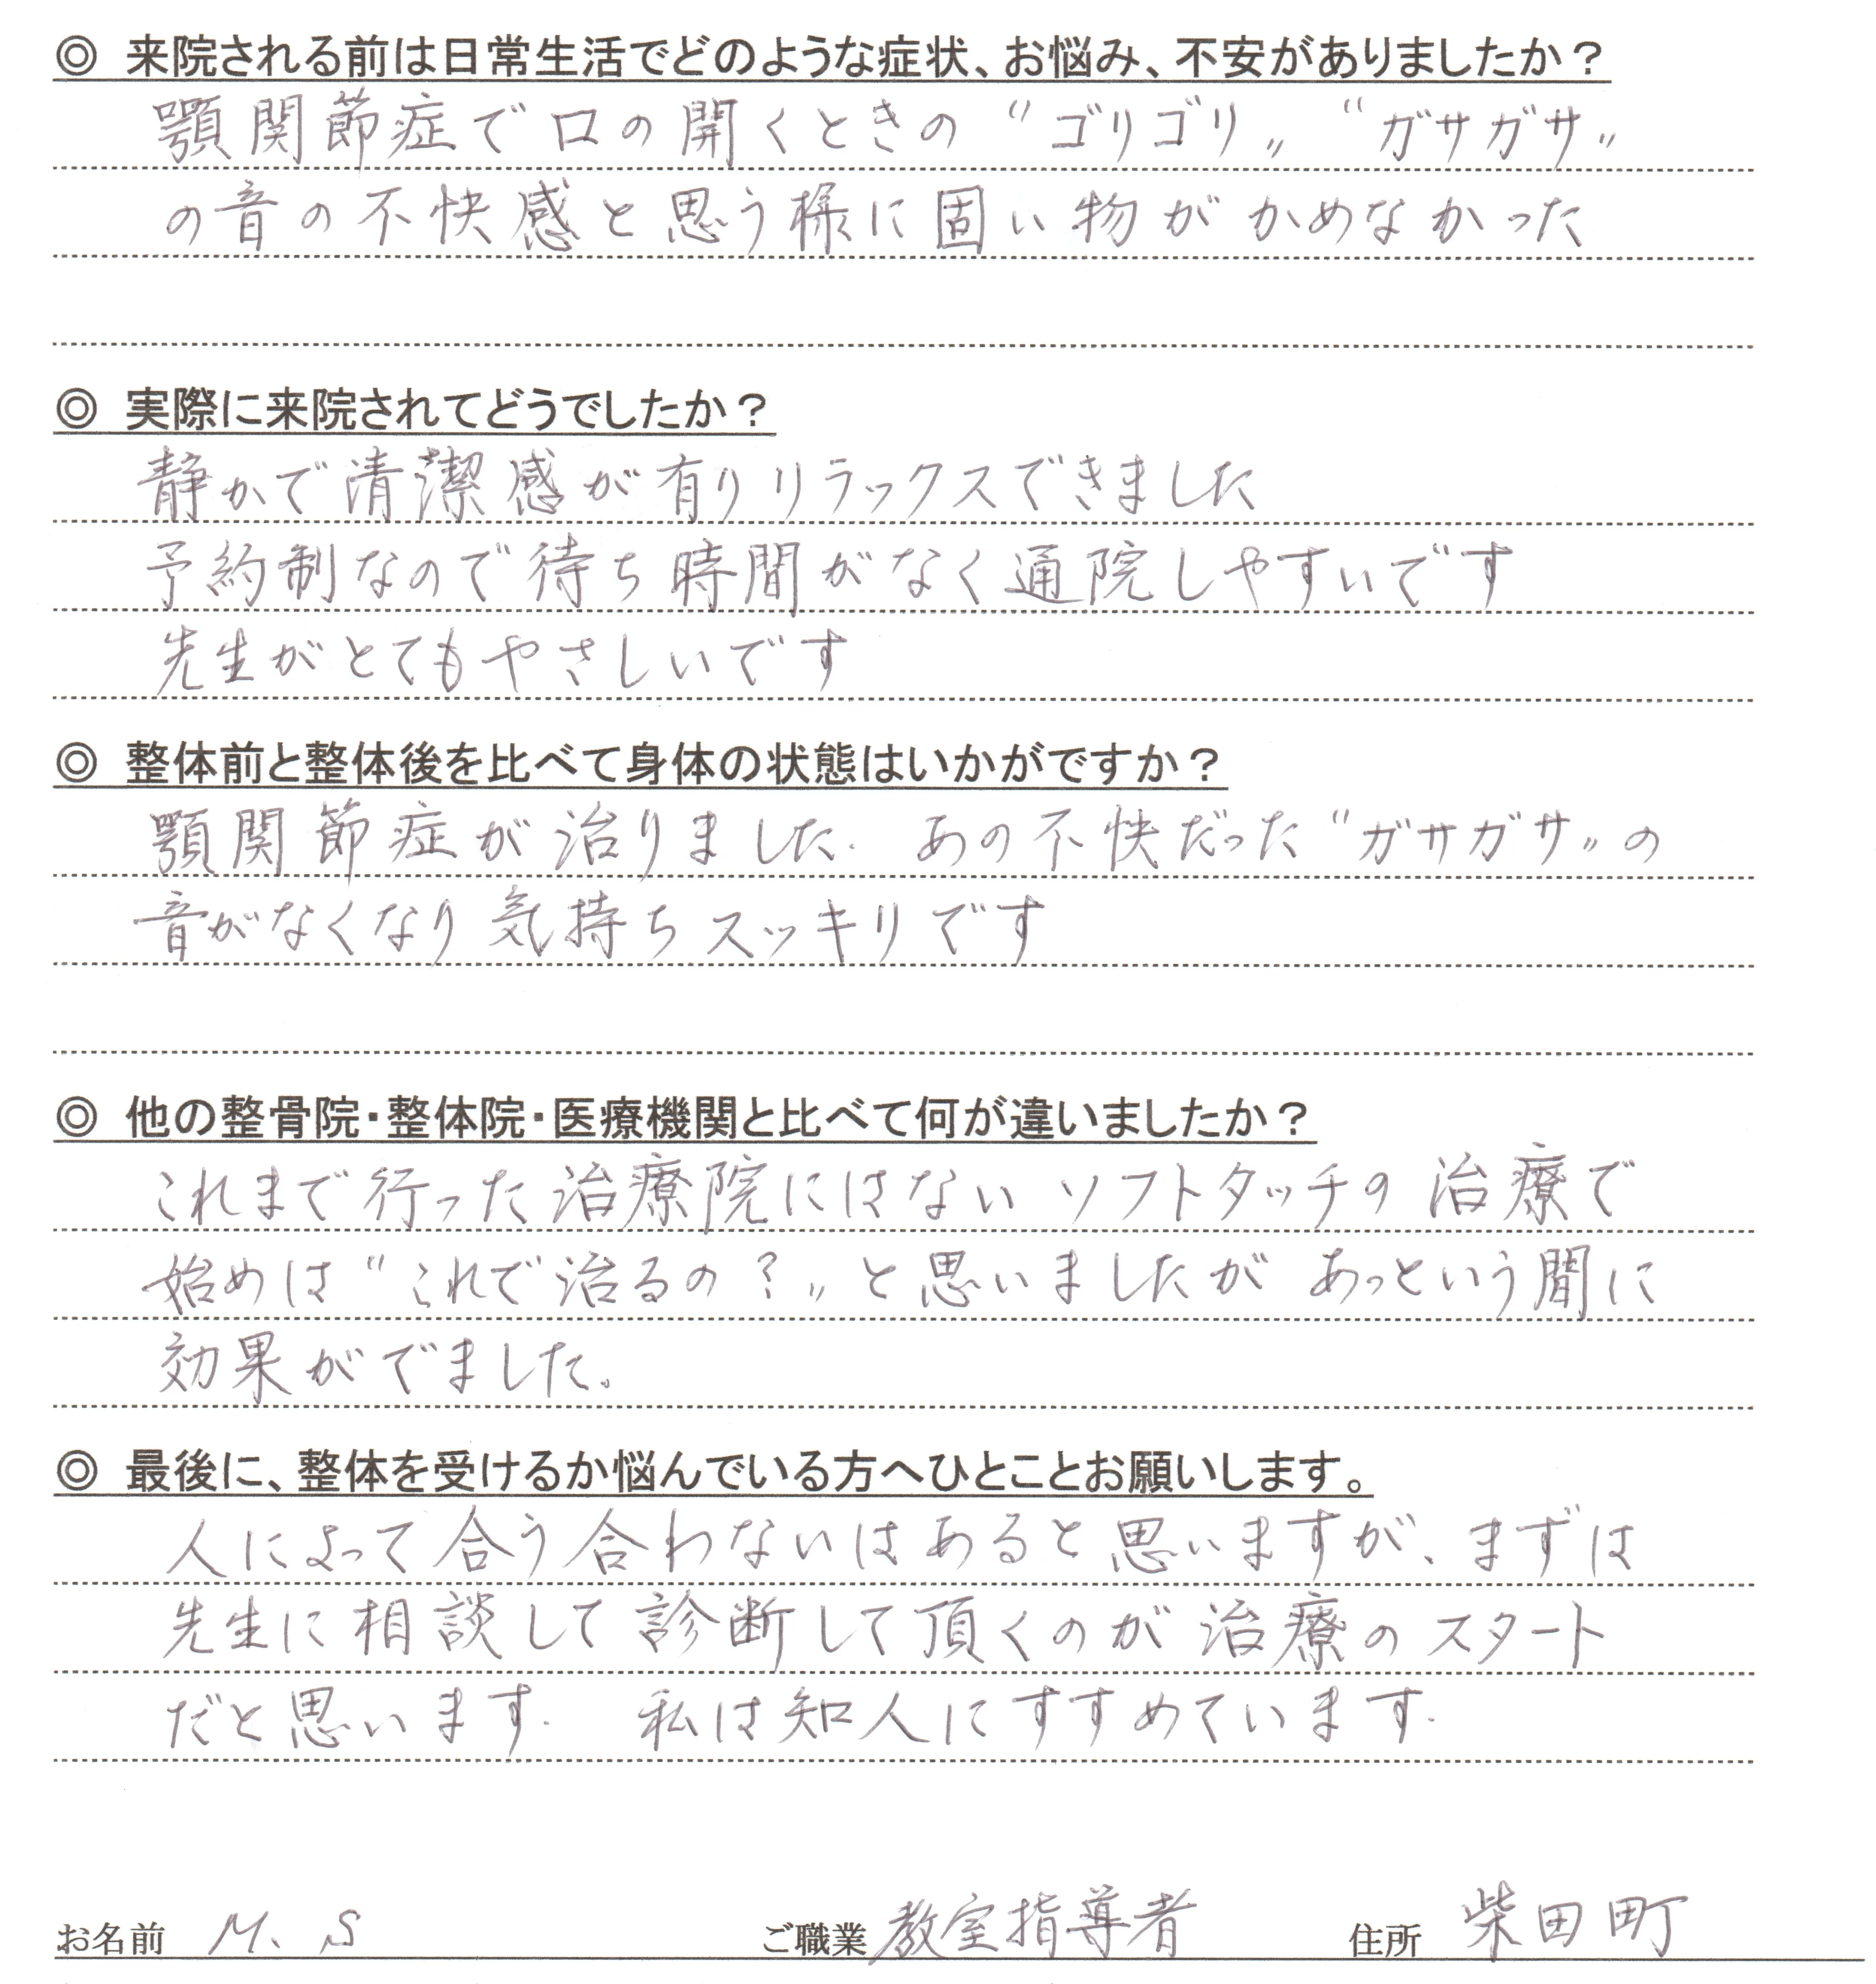 ◎ 来院される前は日常生活でどのような症状、お悩み、不安がありましたか？
顎関節症で口の開くときの〝ゴリゴリ〟〝ガサガサ〟
の音の不快感と思う様に固い物がかめなかった
◎ 実際に来院されてどうでしたか？
静かで清潔感が有りリラックスできました
予約制なので待ち時間がなく通院しやすいです
先生がとてもやさしいです
◎ 整体前と整体後を比べて身体の状態はいかがですか？
顎関節症が治りました. あの不快だった〝ガサガサ〟の
音がなくなり気持ちスッキリです
◎ 他の整骨院・整体院・医療機関と比べて何が違いましたか？
これまで行った治療院にはないソフトタッチの治療で
始めは〝これで治るの？〟と思いましたがあっという間に
効果がでました。
◎ 最後に、整体を受けるか悩んでいる方へひとことお願いします。
人によって合う合わないはあると思いますが、まずは
先生に相談して診断して頂くのが治療のスタート
だと思います. 私は知人にすすめています.
お名前 M. S ご職業 教室指導者 住所 柴田町